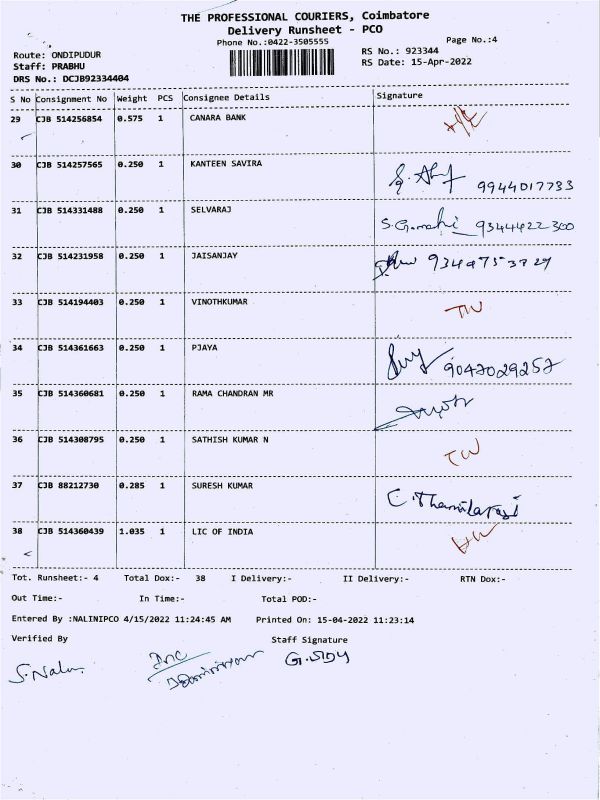 THE PROFESSIONAL COURIERS, Coimbatore
Delivery Runsheet - PCO
Phone No.:0422-3505555
Page No.:4
Route: ONDIPUDUR
RS No.: 923344
Staff: PRABHU
RS Date: 15-Apr-2022
DRS No.: DCJB92334404
S No Consignment No Weight PCS Consignee Details Signature
29 CJB 514256854 0.575 1 CANARA BANK
30 CJB 514257565 0.250 1 KANTEEN SAVIRA 9944017733
31 CJB 514331488 0.250 1 SELVARAJ 9344422300
32 CJB 514231958 0.250 1 JAISANJAY
33 CJB 514194403 0.250 1 VINOTHKUMAR
34 CJB 514361663 0.250 1 PJAYA 9047029257
35 CJB 514360681 0.250 1 RAMA CHANDRAN MR
36 CJB 514308795 0.250 1 SATHISH KUMAR N
37 CJB 88212730 0.285 1 SURESH KUMAR C.Thamilarasi
38 CJB 514360439 1.035 1 LIC OF INDIA
Tot. Runsheet:- 4 Total Dox:- 38 I Delivery:- II Delivery:- RTN Dox:-
Out Time:- In Time:- Total POD:-
Entered By :NALINIPCO 4/15/2022 11:24:45 AM Printed On: 15-04-2022 11:23:14
Verified By Staff Signature
S.Nalu